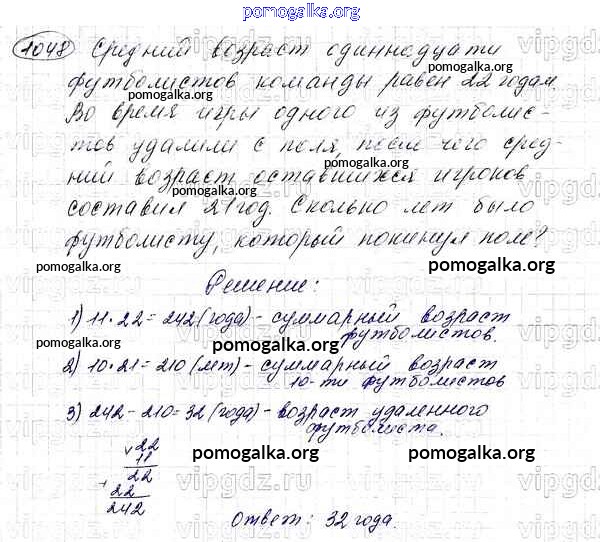 pomogalka.org
1048 Средний возраст одиннадцати
футболистов команды равен 22 годам.
Во время игры одного из футболис-
тов удалили с поля, после чего сред-
ний возраст оставшихся игроков
составил 21 год. Сколько лет было
футболисту, который покинул поле?
pomogalka.org
Решение:
1) 11 · 22 = 242 (года) - суммарный возраст
футболистов.
2) 10 · 21 = 210 (лет) - суммарный возраст
10-ти футболистов
3) 242 - 210 = 32 (года) - возраст удаленного
футболиста.
× 22
11
+ 22
22
242
Ответ: 32 года.
pomogalka.org
vipgdz.ru